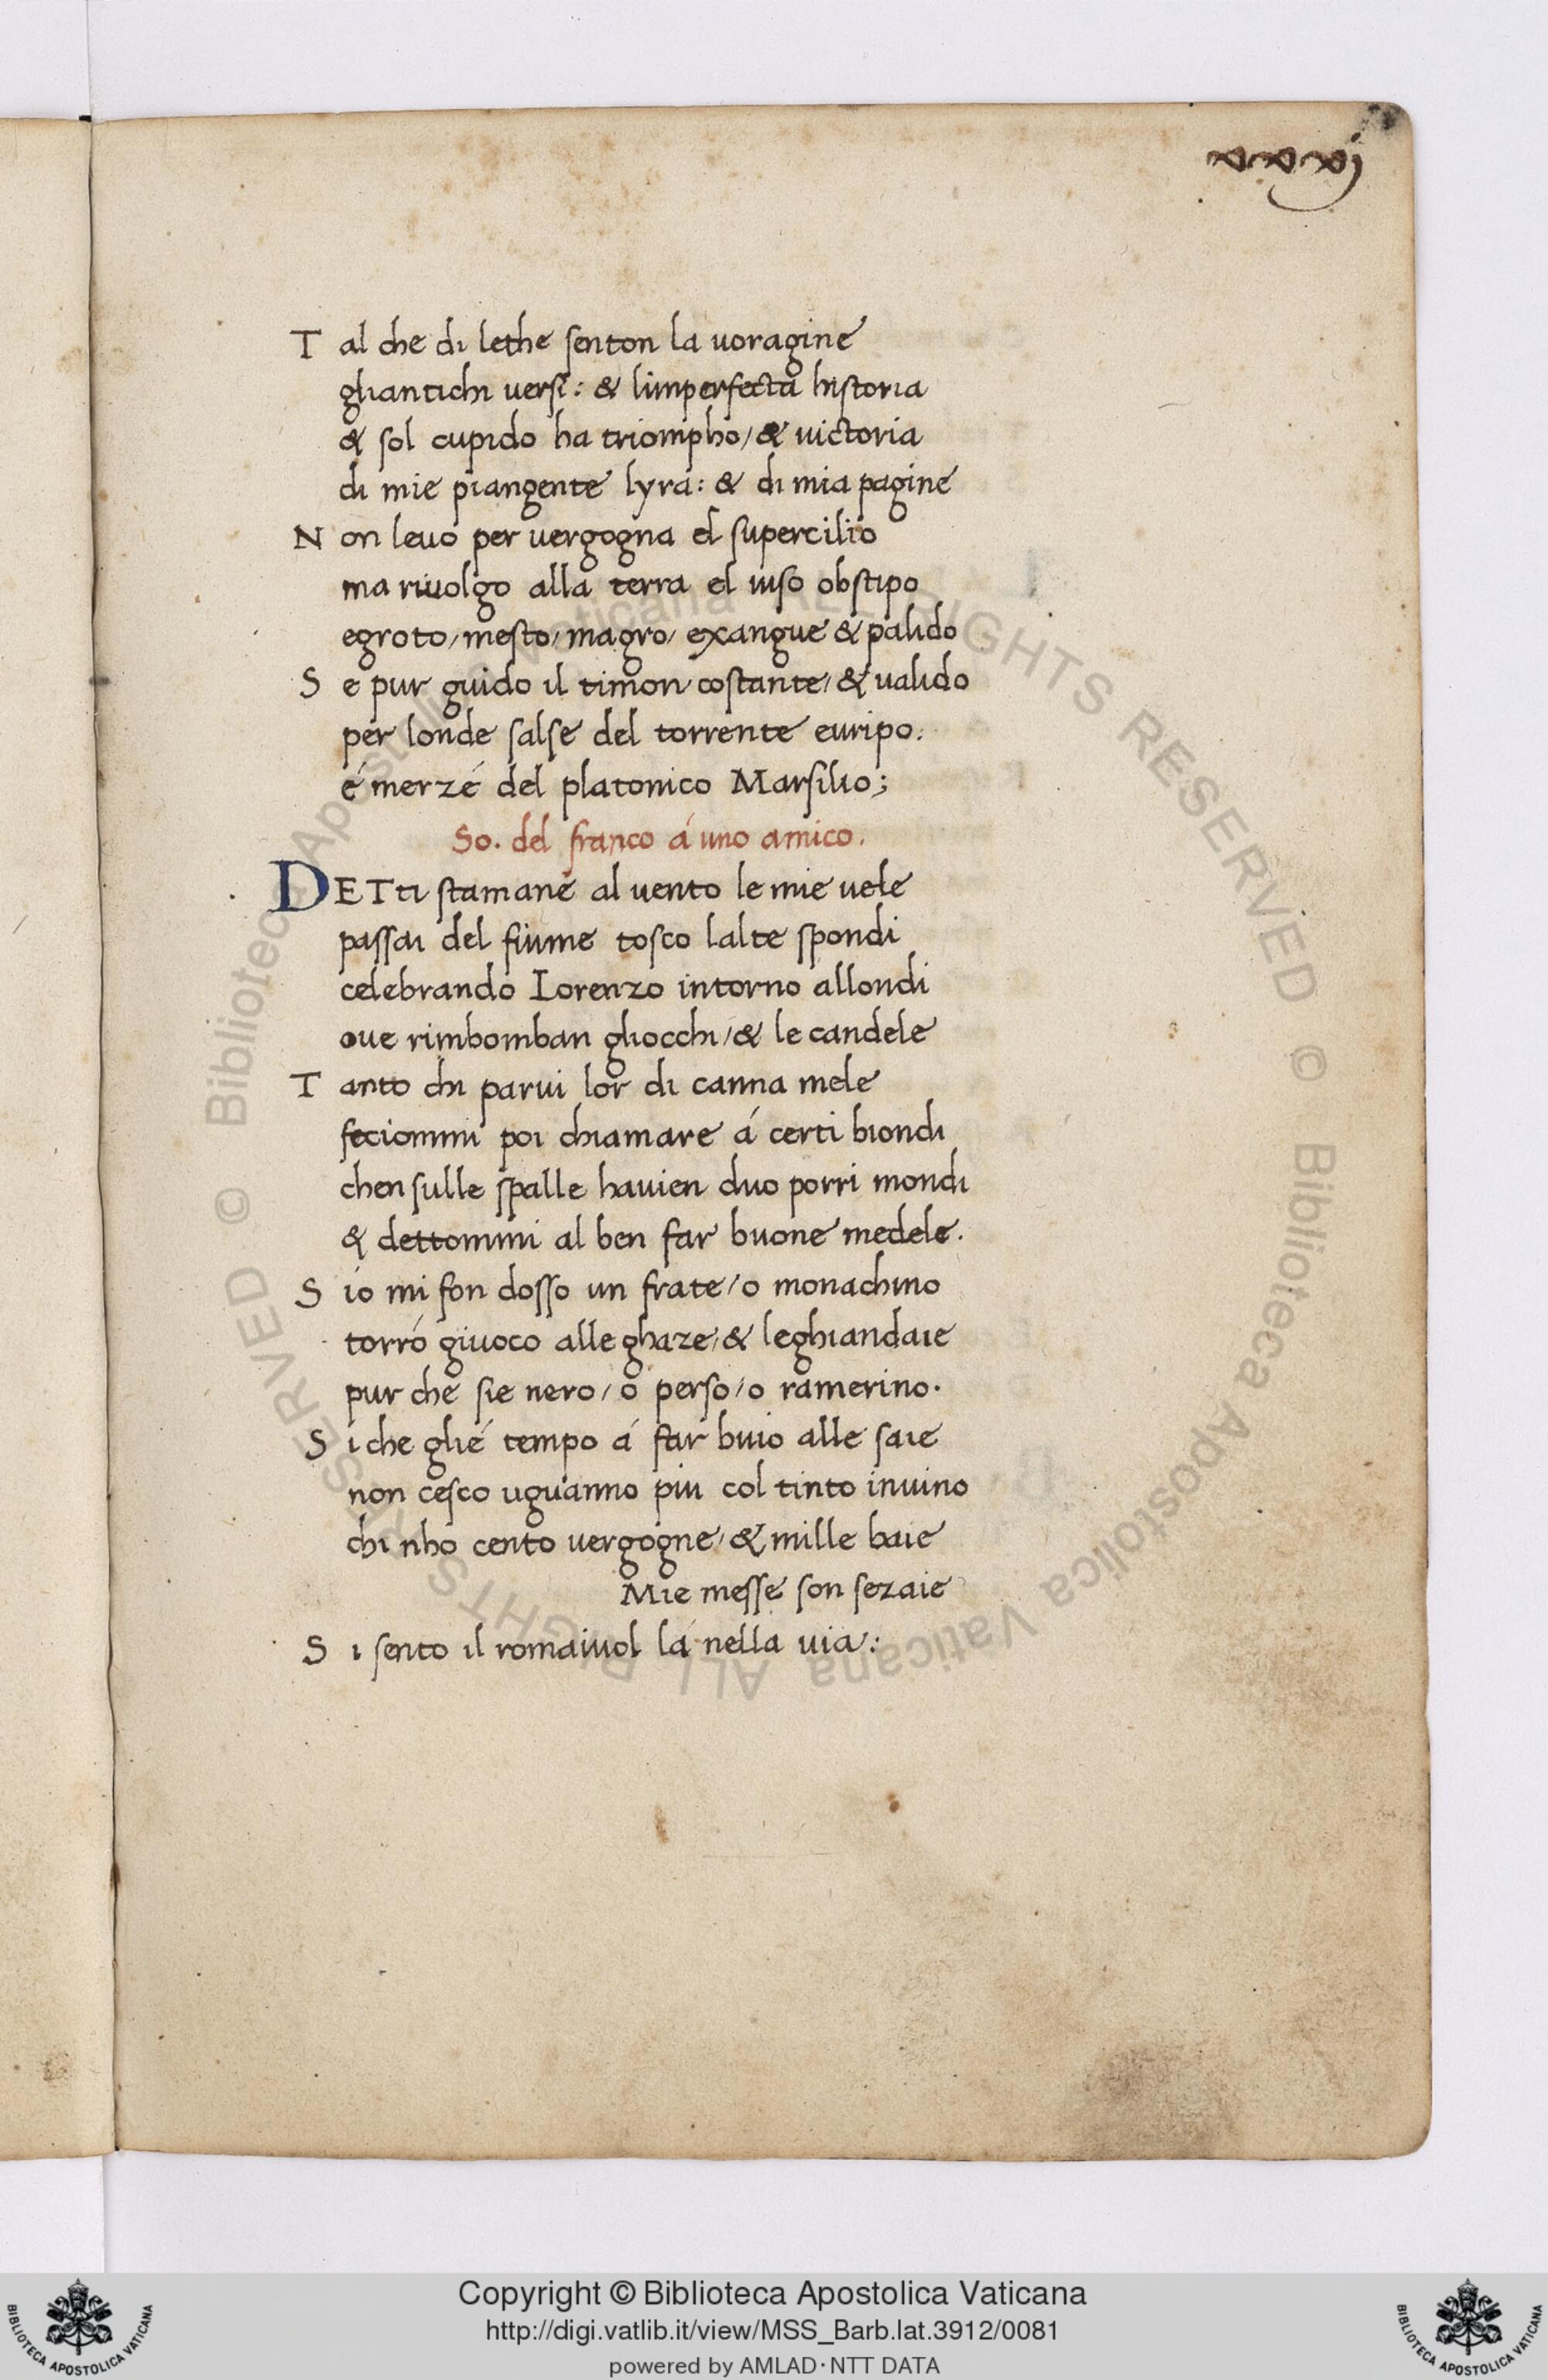 xxxj
T al che di lethe senton la uoragine
gliantichi uersi: & limperfecta historia
& sol cupido ha triompho/ & uictoria
di mie piangente lyra: & di mia pagine
N on leuo per uergogna el supercilio
ma riuolgo alla terra el uiso obstipo
egroto/ mesto/ magro/ exangue & palido
S e pur guido il timon costante/ & ualido
per londe salse del torrente euripo.
é merzé del platonico Marsilio;
So. del franco á uno amico.
DETti stamane al uento le mie uele
passai del fiume tosco lalte spondi
celebrando Lorenzo intorno allondi
oue rimbomban gliocchi/ & le candele
T anto chi parui lor di canna mele
feciommi poi chiamare á certi biondi
chen sulle spalle hauien duo porri mondi
& dettommi al ben far buone medele.
S io mi fon dosso un frate/ o monachino
torró giuoco alle ghaze/ & leghiandaie
pur che sie nero/ o perso/ o ramerino.
S i che glié tempo á far buio alle saie
non cesco uguanno piu col tinto inuino
chi nho cento uergogne/ & mille baie
Mie messe son sezaie
S i sento il romaiuol lá nella uia:
© Biblioteca Apostolica Vaticana ALL RIGHTS RESERVED © Biblioteca Apostolica Vaticana ALL RIGHTS RESERVED
Copyright © Biblioteca Apostolica Vaticana
http://digi.vatlib.it/view/MSS_Barb.lat.3912/0081
powered by AMLAD·NTT DATA
BIBLIOTECA APOSTOLICA VATICANA
BIBLIOTECA APOSTOLICA VATICANA